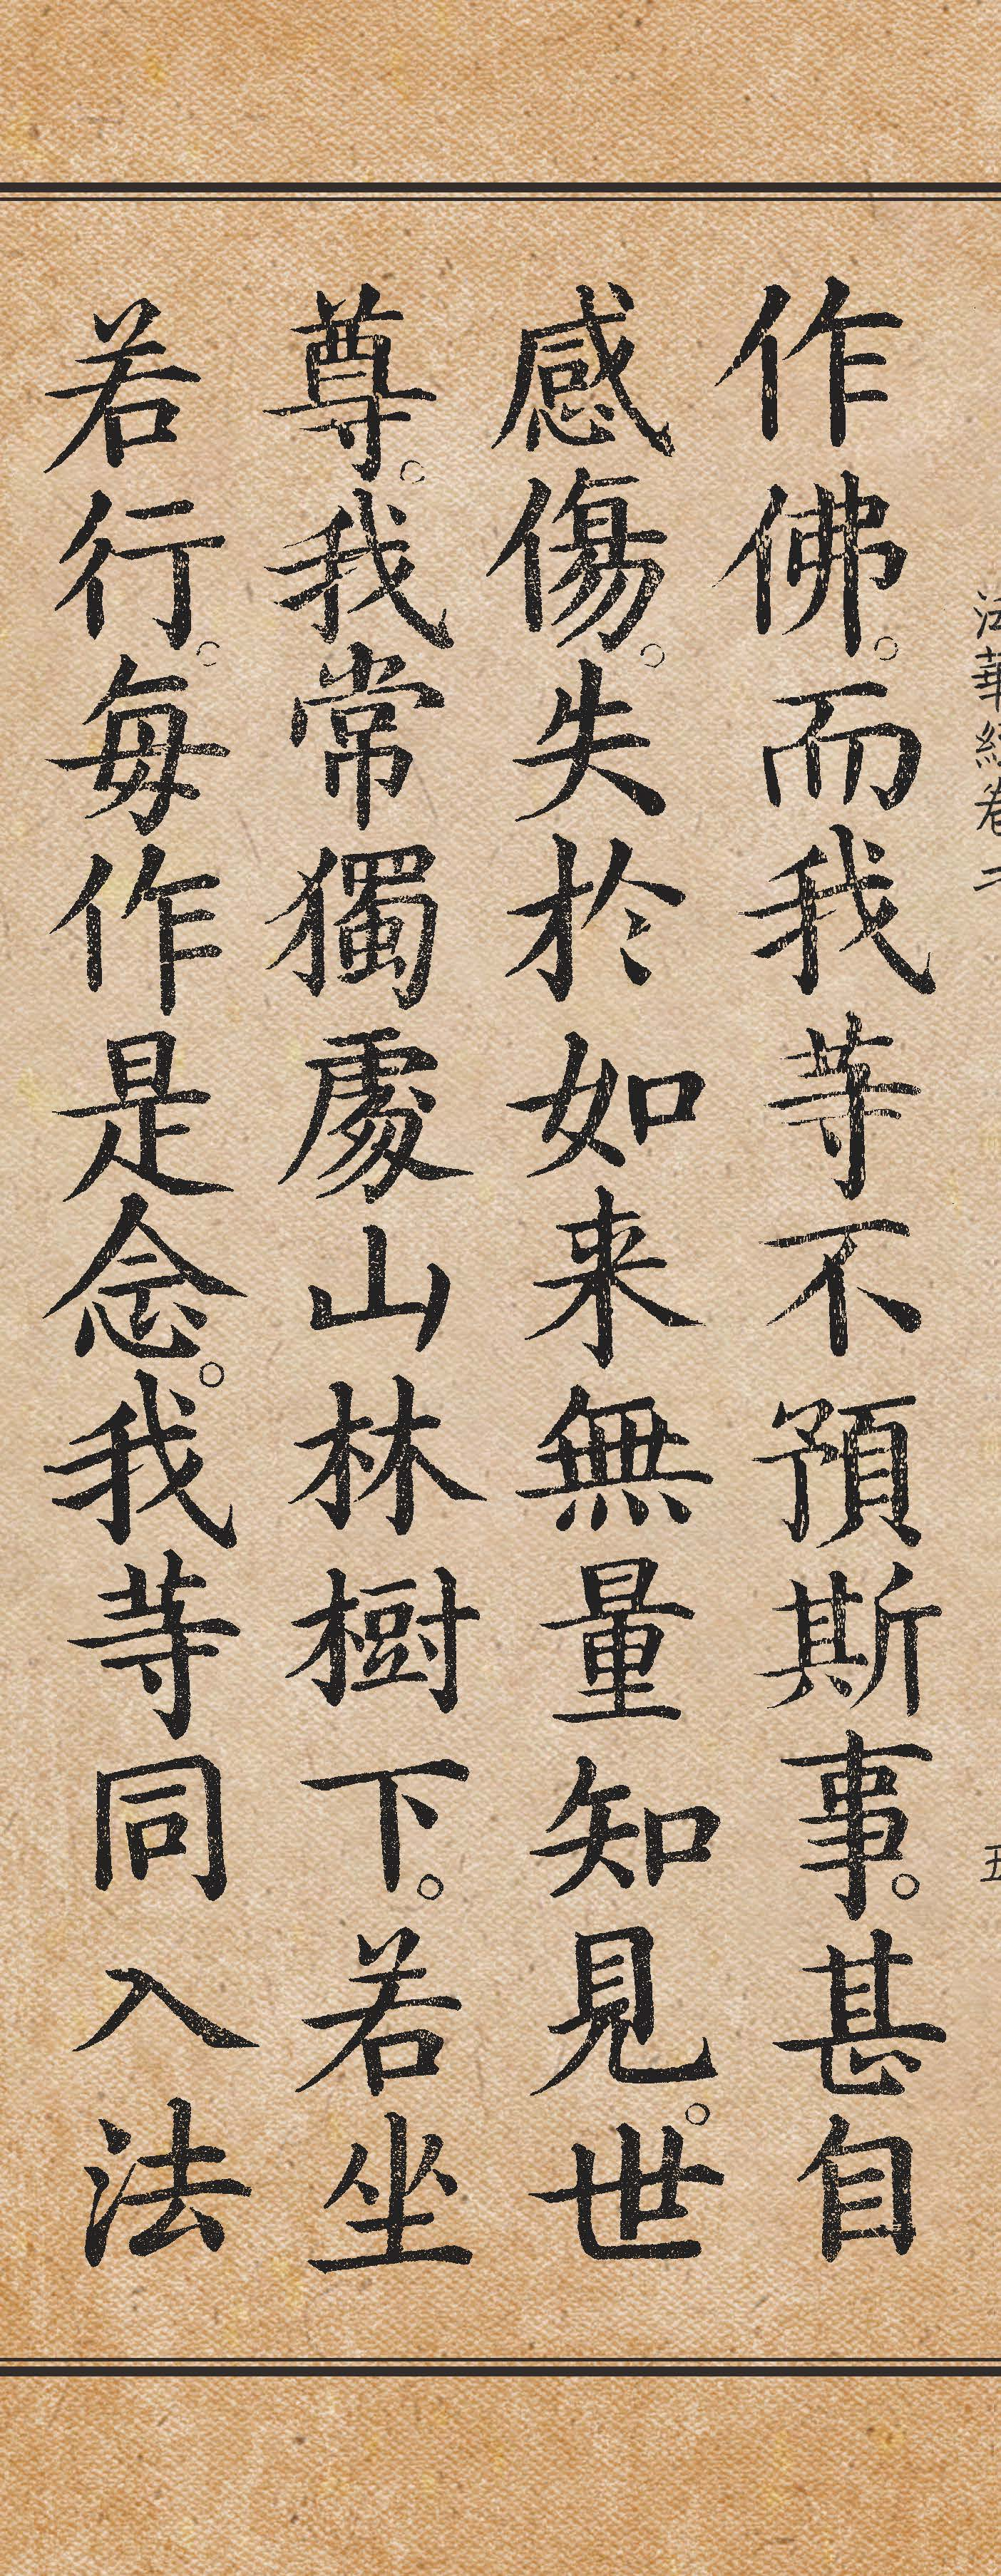 法華經卷二 五
作佛。而我等不預斯事。甚自
感傷。失於如来無量知見。世
尊。我常獨處山林樹下。若坐
若行。每作是念。我等同入法